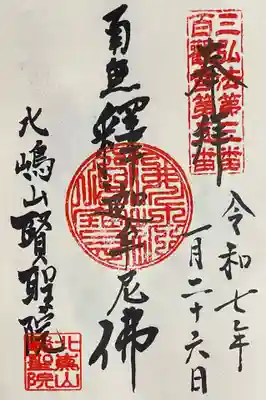 三弘法第三番
奉拝
令和七年
一月二十六日
南無釋迦牟尼佛
北嶋山賢聖院
北嶌山
賢聖院